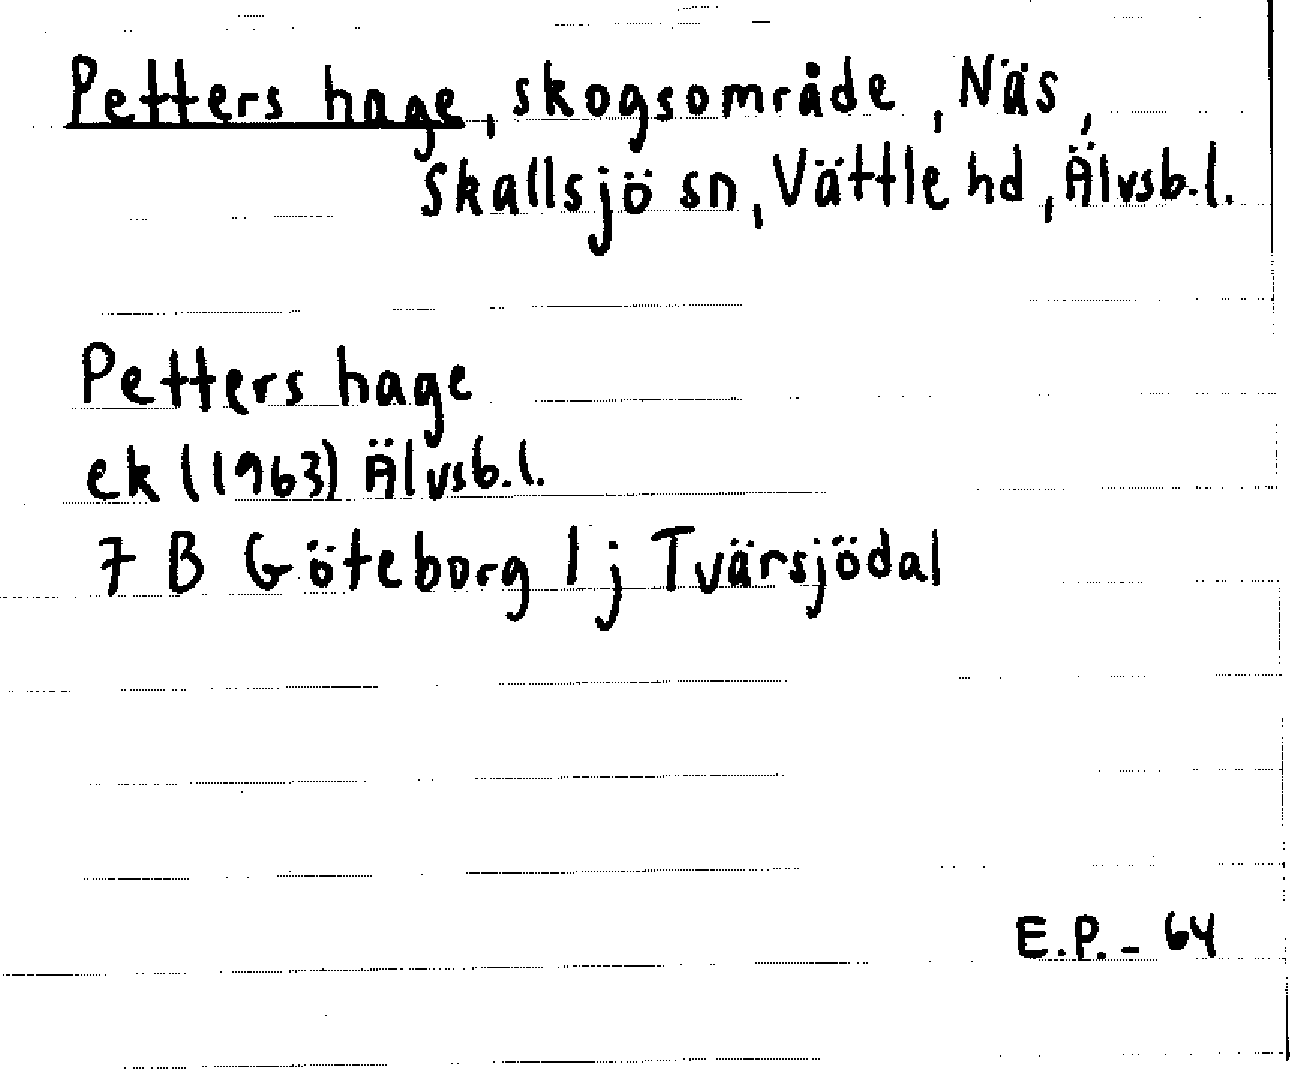 Petters hage, skogsområde, Näs,
Skallsjö sn, Vättle hd, Älvsb.l.
Petters hage
ek (1963) Älvsb.l.
7 B Göteborg 1 j Tvärsjödal
E.P. - 64